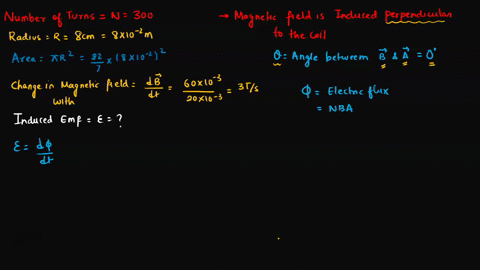 Number of Turns = N = 300
Radius = R = 8cm = 8×10⁻² m
Area = πR² = 22/7 × (8×10⁻²)²
Change in Magnetic field = dB⃗/dt = 60×10⁻³/20×10⁻³ = 3T/s
with
Induced Emf = ε = ?
ε = dϕ/dt
→ Magnetic field is Induced perpendicular
to the coil
θ = Angle between B⃗ & A⃗ = 0°
ϕ = Electric flux
= NBA